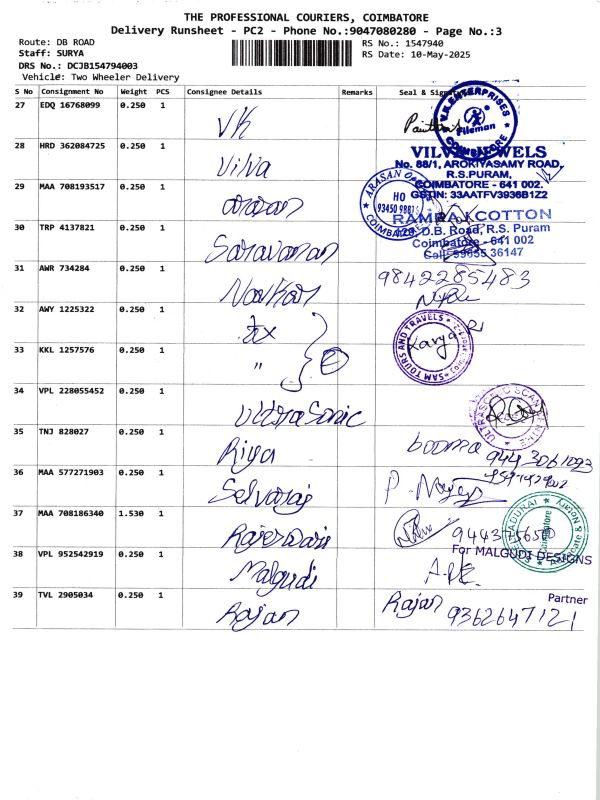 THE PROFESSIONAL COURIERS, COIMBATORE
Delivery Runsheet - PC2 - Phone No.:9047080280 - Page No.:3
Route: DB ROAD
Staff: SURYA
DRS No.: DCJB154794003
Vehicle: Two Wheeler Delivery
RS No.: 1547940
RS Date: 10-May-2025
S No Consignment No Weight PCS Consignee Details Remarks Seal &
27 EDQ 16768099 0.250 1 VK
V.K.ENTERPRISES Fileman COIMBATORE
28 HRD 362084725 0.250 1 Vilva
No. 88/1, AROKIYASAMY ROAD,
R.S.PURAM,
COIMBATORE - 641 002.
GSTIN: 33AATFV3936B1Z2
29 MAA 708193517 0.250 1 arasan
ARASAN
HO
30 TRP 4137821 0.250 1 Saravanan
COTTON
D.B. Road, R.S. Puram
Coimbatore - 641 002
31 AWR 734284 0.250 1
9842285483
32 AWY 1225322 0.250 1
SAM TOURS AND TRAVELS
Karya
33 KKL 1257576 0.250 1 "
34 VPL 228055452 0.250 1 UldraSonic
35 TNJ 828027 0.250 1 Riya
booma 9443061093
36 MAA 577271903 0.250 1 Selvaraj
37 MAA 708186340 1.530 1 Rajeswari
Coimbatore
38 VPL 952542919 0.250 1 Malgudi
For MALGUDI DESIGNS
Partner
39 TVL 2905034 0.250 1 Rajan
Rajan
9362647121